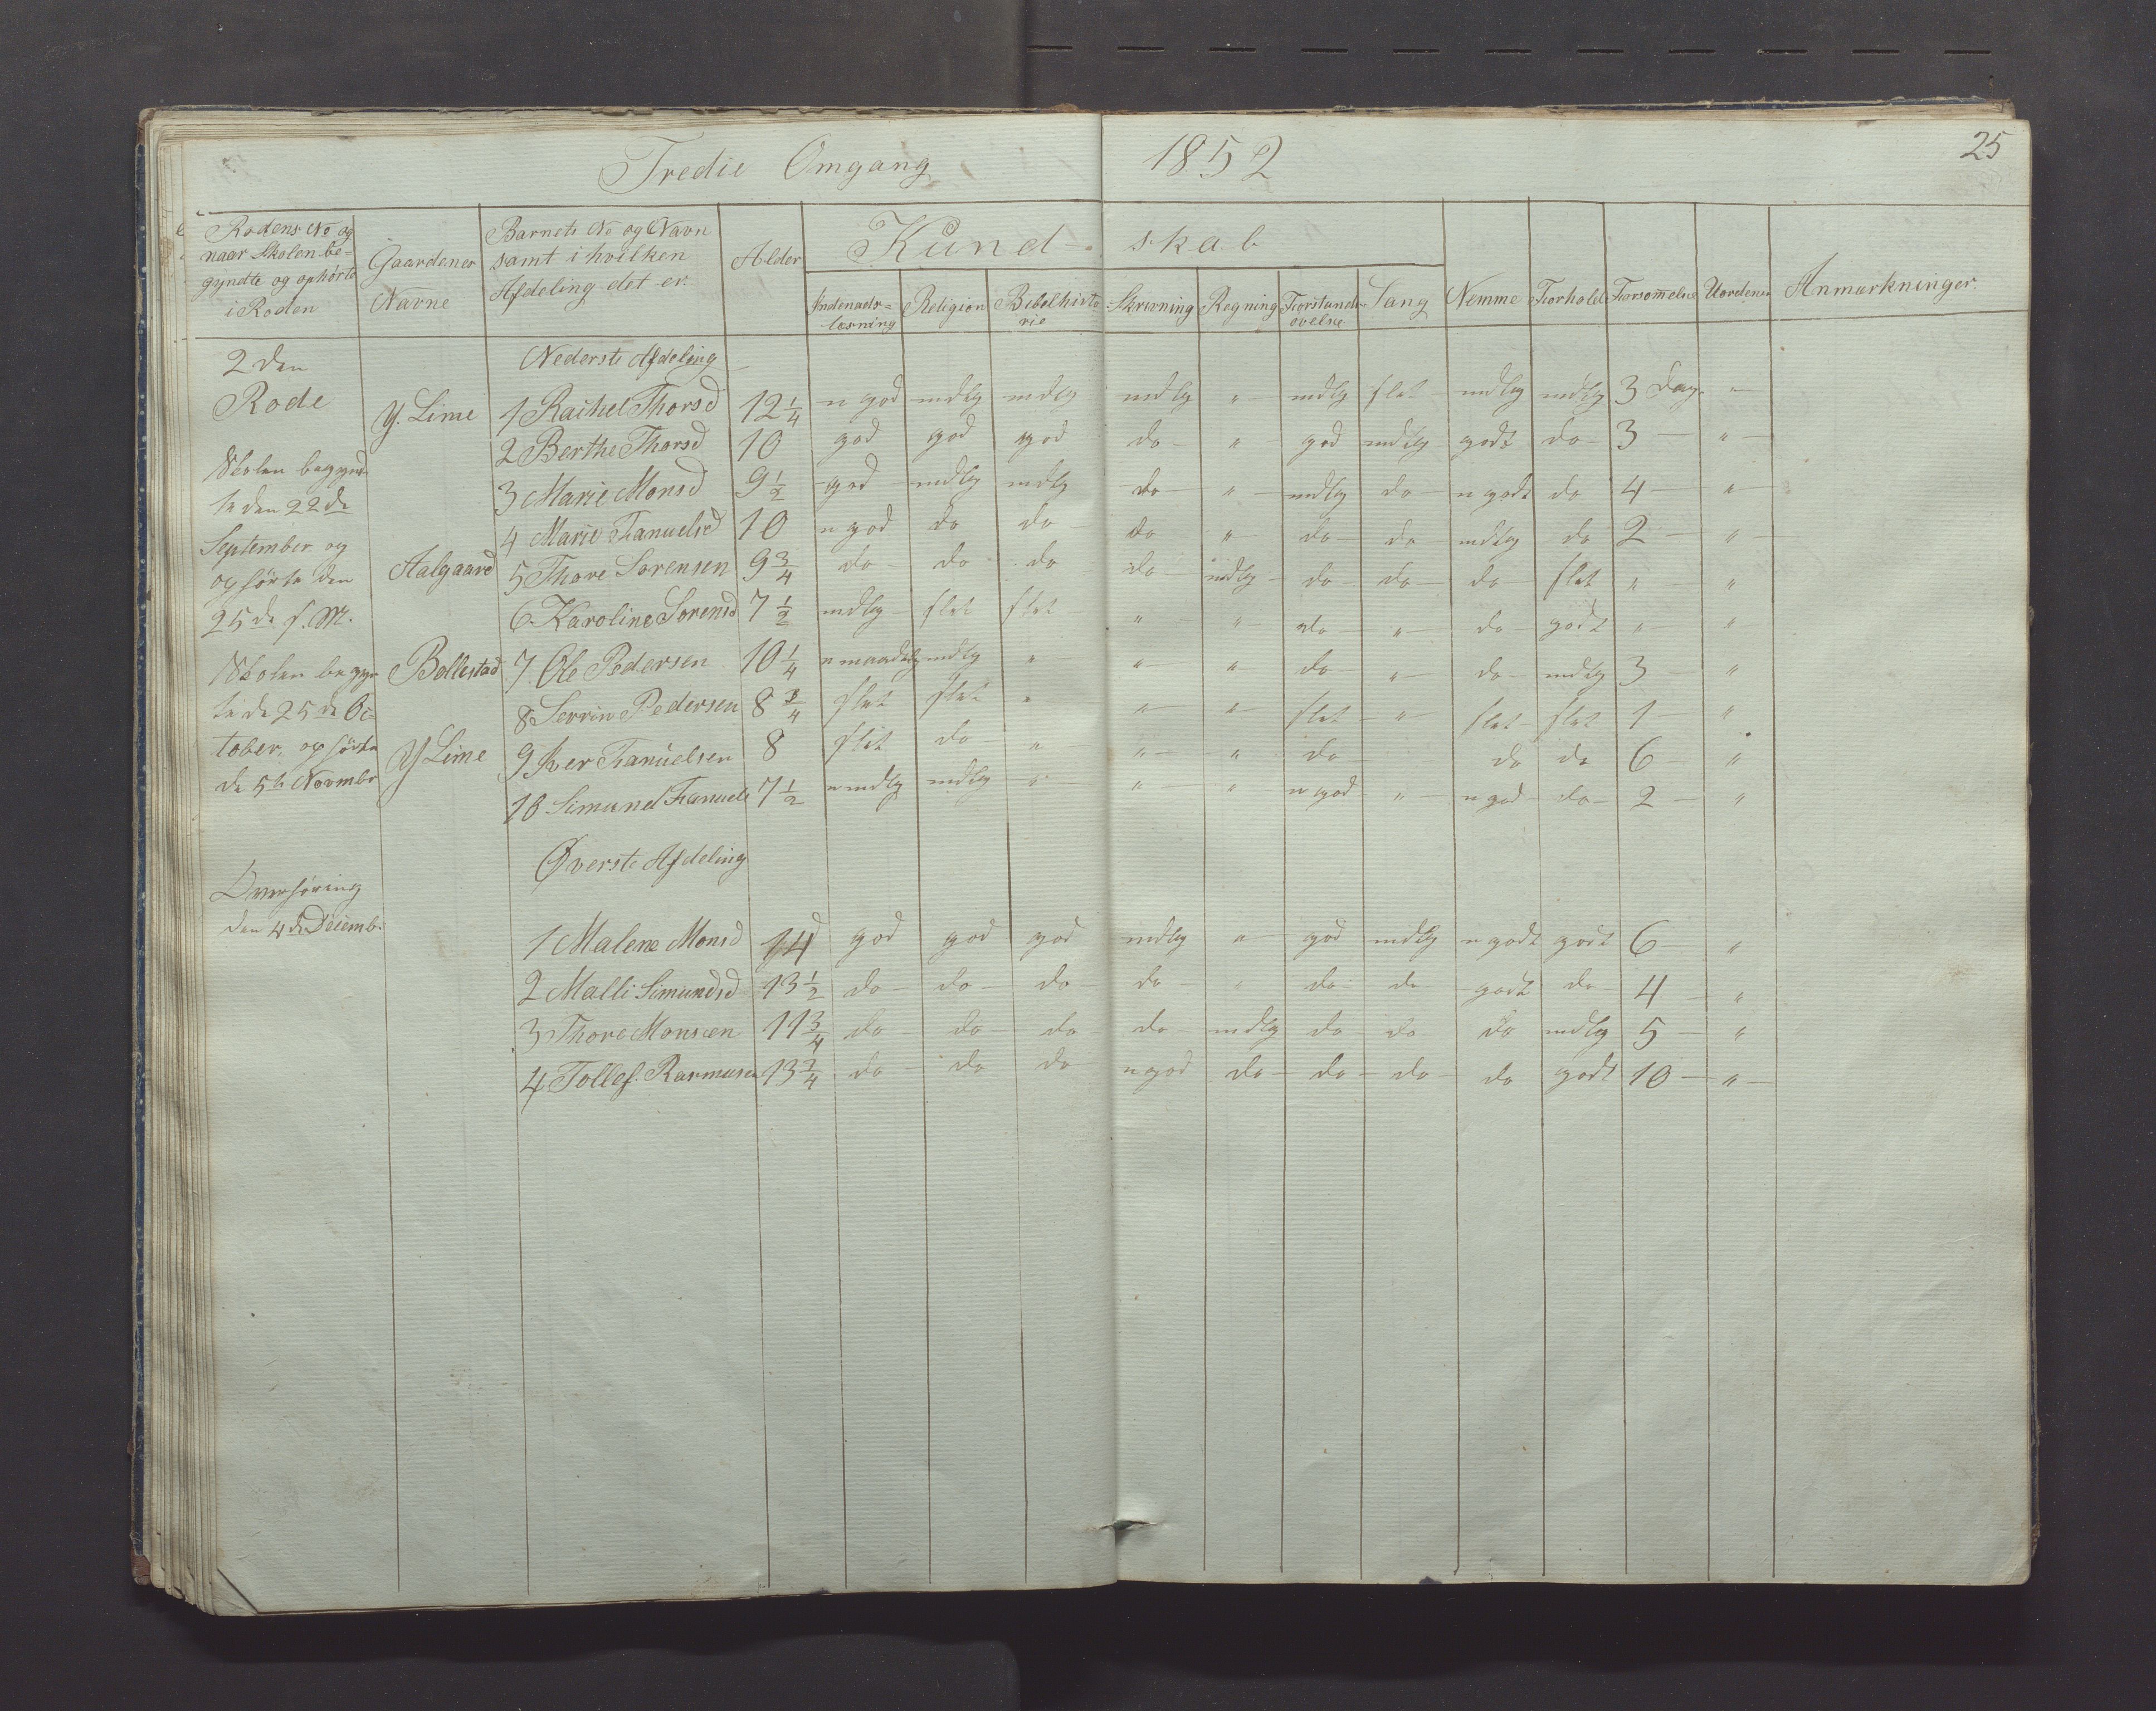 Tredie Omgang 1852 25
Rodens No og
naar Skolen be=
gyndte og ophørte
i Roden
Gaardenes
Navne
Barnets No og Navn
samt i hvilken
Afdeling det er.
Alder
Kund- skab
Indenads=
læsning
Religion
Bibelhisto
rie
Skrivning
Regning
Forstands
øvelse
Sang
Nemme
Forhold
Forsømelse
Uordener
Anmærkninger.
2den
Rode
Skolen begynd
te den 22de
September og
ophørte den
25de s. M.
Skolen begyn
te de 25de Oc
tober, ophørte
de 5te Novmbr
Overhøring
den 4de Decemb.
Nederste Afdeling
Y. Lime 1 Rachel Thorsd 12 1/4 n god mdlg mdlg mdlg " mdlg slet mdlg mdlg 3 Dag. "
2 Berthe Thorsd 10 god god god do " god mdlg godt do 3 "
3 Marie Monsd 9 1/2 god mdlg mdlg do " mdlg do n godt do 4 "
4 Marie Fanuelsd 10 n god do do do " do do mdlg do 2 "
Aalgaard 5 Thore Sørensen 9 3/4 do do do do mdlg do do do slet " "
6 Karoline Sørensd 7 1/2 mdlg slet slet " " do " do godt " "
Bollestad 7 Ole Pedersen 10 1/4 n maadelg mdlg " " " do " do mdlg 3 "
8 Serrine Pedersen 8 3/4 slet slet " " " slet " slet slet 1 "
Y Lime 9 Iver Fanuelsen 8 slet do " " " do do do 6 "
10 Simund Fanuels 7 1/2 n mdlg mdlg " " " n god " n god do 2 "
Øverste Afdeling
1 Malene Monsd 14 god god god mdlg " god mdlg n godt godt 6 "
2 Malli Simundsd 13 1/2 do do do do " do do godt do 4 "
3 Thore Monsen 11 3/4 do do do do mdlg do do do mdlg 5 "
4 Tollef. Rasmusen 13 1/4 do do do n god do do do do godt 10 "